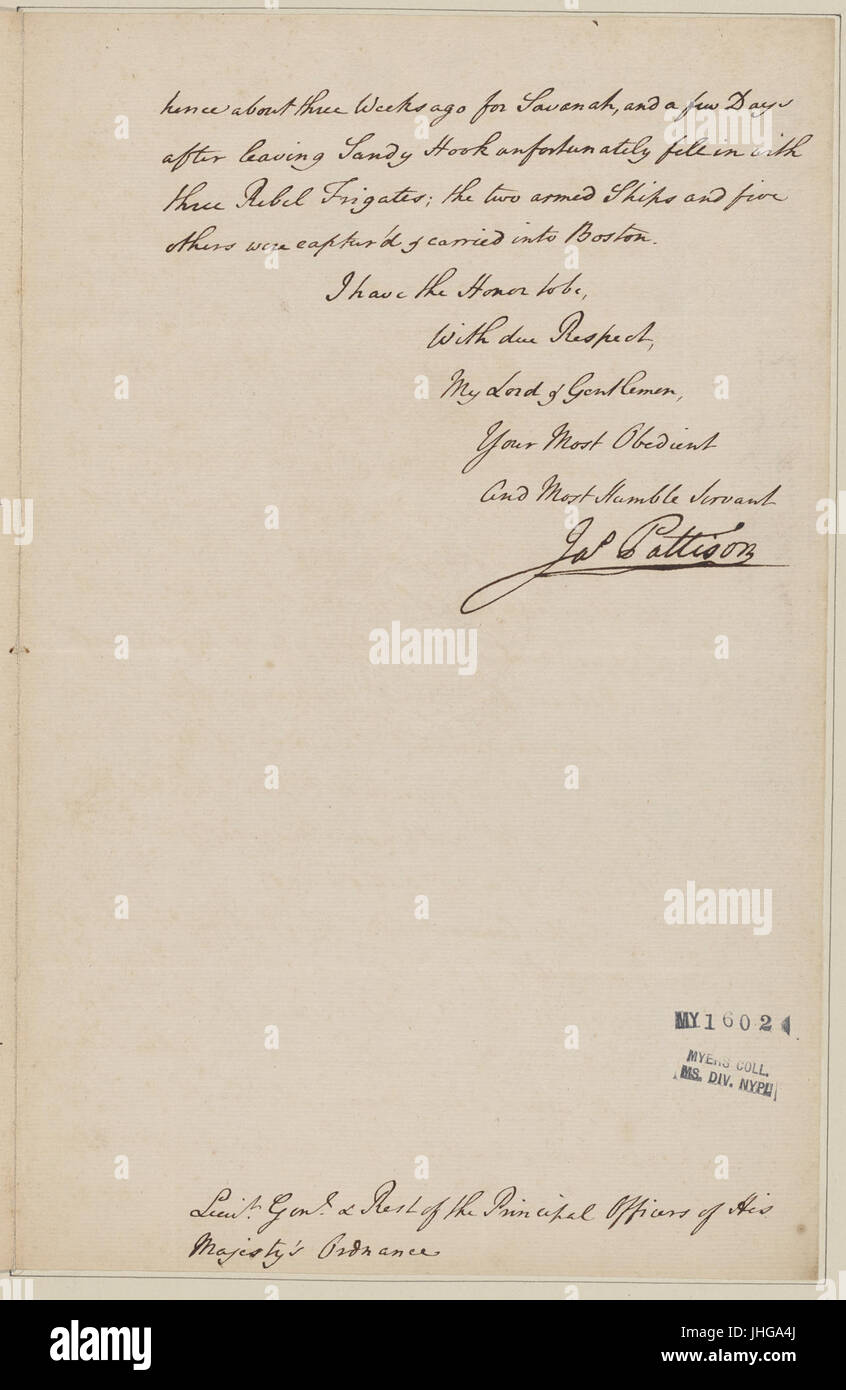 hence about three Weeks ago for Savanah, and a few Days
after leaving Sandy Hook unfortunately fell in with
three Rebel Frigates; the two armed Ships and five
others were captur'd & carried into Boston.
I have the Honor to be,
With due Respect,
My Lord & Gentlemen,
Your Most Obedient
And Most Humble Servant
Jas Pattison
MY1602
MYERS COLL.
MS. DIV. NYPL
Lieut. Genl. & Rest of the Principal Officers of His
Majesty's Ordnance
alamy
alamy
Image ID: JHGA4J
www.alamy.com